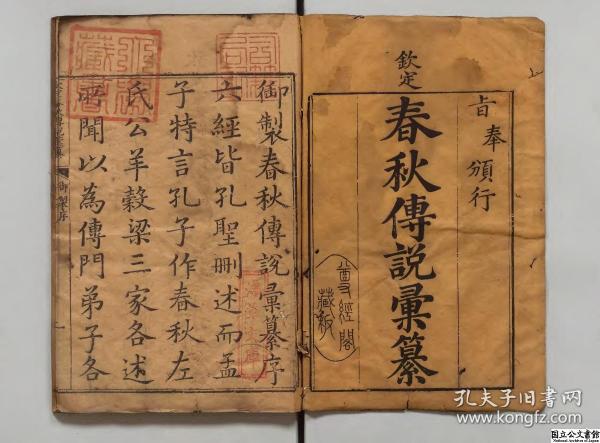 旨奉頒行
欽定
春秋傳說彙纂
尊經閣
藏板
御製春秋傳說彙纂序
六經皆孔聖刪述而孟
子特言孔子作春秋左
氏公羊穀梁三家各述
所聞以為傳門弟子各
孔夫子旧书网
www.kongfz.com
国立公文書館
National Archives of Japan